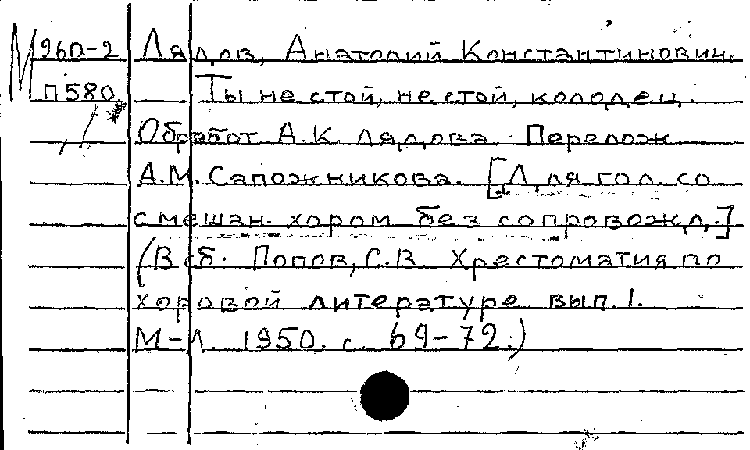 М960-2 Лядов, Анатолий Константинович.
П580 Ты не стой, не стой, колодец.
Обработ А.К. Лядова. Перелож
А.М. Сапожникова. [Для гол. со
смешан. хором без сопровожд.]
(В сб. Попов, С.В. Хрестоматия по
хоровой литературе вып. 1.
М-Л. 1950. с. 69-72.)